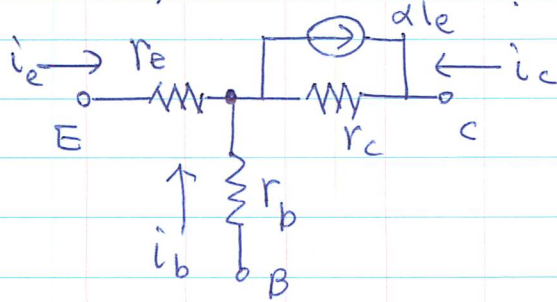 αIe
ie re ic
E rc C
ib rb
B